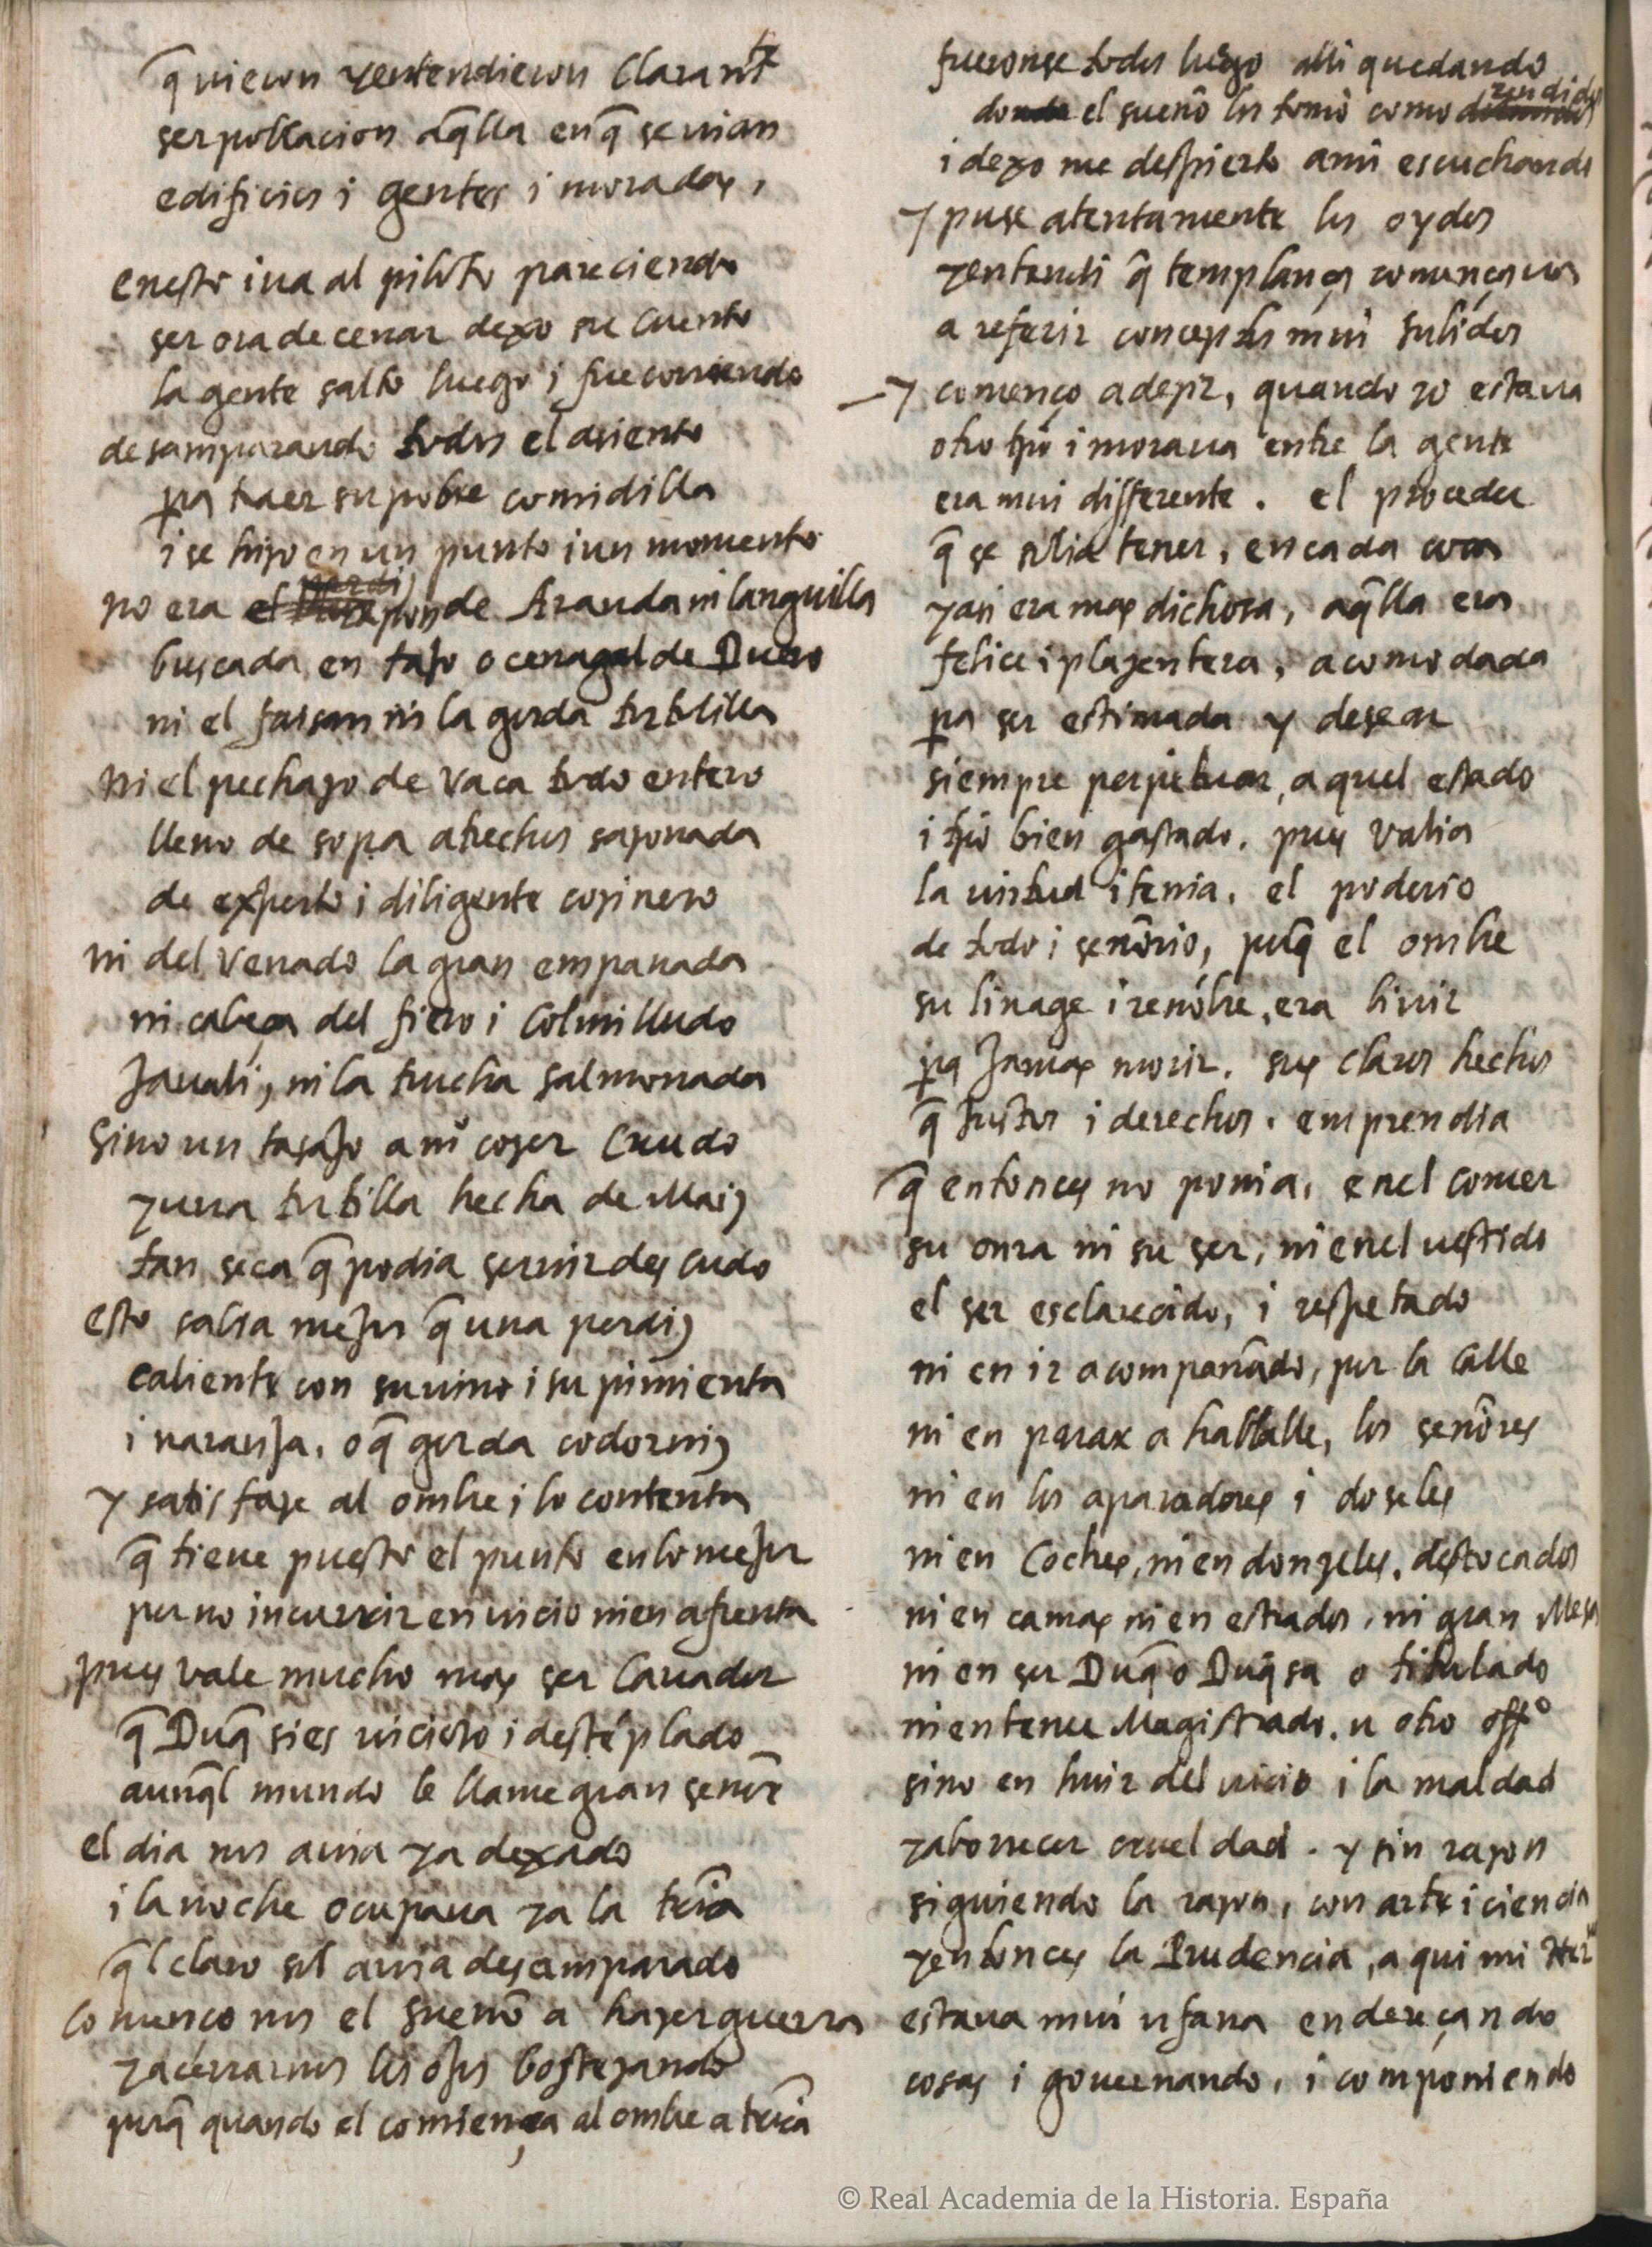 q̃ vieron y entendieron claramte
ser poblacion aq̃lla en q̃ se vian
edificios i gentes i moradas,
en esto iva al piloto pareciendo
ser ora de cenar dexo su cuento
la gente salto luego i fue corriendo
desamparando todos el asiento
pa traer su pobre comidilla
i se hizo en un punto i un momento
no era perdiz de Aranda ni languilla
buscada en tajo o cenagal de Duero
ni el faisan ni la gorda tortolilla
ni el pechazo de vaca todo entero
lleno de sopa a trechos sazonada
de experto i diligente cozinero
ni del venado la gran empanada
ni cabeça del fiero i colmilludo
Javali, ni la trucha salmonada
sino un tasajo a mo cozer crudo
y una tortilla hecha de Maiz
tan seca q̃ podia servir descudo
esto sabia mejor q̃ una perdiz
caliente con su vino i su pimienta
i naranja, o q̃ gorda codorniz
y satisfaze al ombre i lo contenta
q̃ tiene puesto el punto en lo mejor
por no incurrir en vicio ni en afrenta
pues vale mucho mas ser Cavador
q̃ Duq̃ si es vicioso i destéplado
aunq̃l mundo le llame gran señor
el dia nos avia ya dexado
i la noche ocupava ya la trra
q̃l claro sol avia desamparado
Comenco nos el sueño a hazer guerra
y a cerrarnos los ojos bostezando
porq̃ quando el comiença al ombre atrra
fueronse todos luego alli quedando
do el sueño los tomo como rendidos
i dexo me despierto a mi escuchando
y puse atentamente los oydos
y entendi q̃ templança començava
a referir conceptos mui solidos
y començo a dezir, quando yo estava
otro tpo i morava entre la gente
era mui differente. el proceder
q̃ se solia tener, en cada cosa
y asi era mas dichosa, aq̃lla era
felice i plazentera, acomodada
pa ser estimada y desear
siempre perpetuar, aquel estado
i tpo bien gastado. pues valia
la virtud i tenia, el poderio
de todo i señorio, porq̃ el ombre
su linage i renóbre, era bivir
pa Jamas morir. sus claros hechos
q̃ justos i derechos. emprendia
q̃ entonces no ponia, en el comer
su onra ni su ser, ni en el vestido
el ser esclarecido, i respetado
ni en ir acompañado, por la calle
ni en parar a hablalle, los señores
ni en los aparadores i doseles
ni en Coches, ni en donzeles, destocados
ni en camas ni en estrados, ni gran Mesa
ni en ser Duq̃ o Duq̃sa o titulado
ni en tener Magistrado. u otro offo
sino en huir del vicio i la maldad
y aborrecer crueldad. y sin razon
siguiendo la razon, con arte i ciencia
y entonces la Prudencia, a qui mi Herna
estava mui ufana endereçando
cosas i governando, i componiendo
© Real Academia de la Historia. España